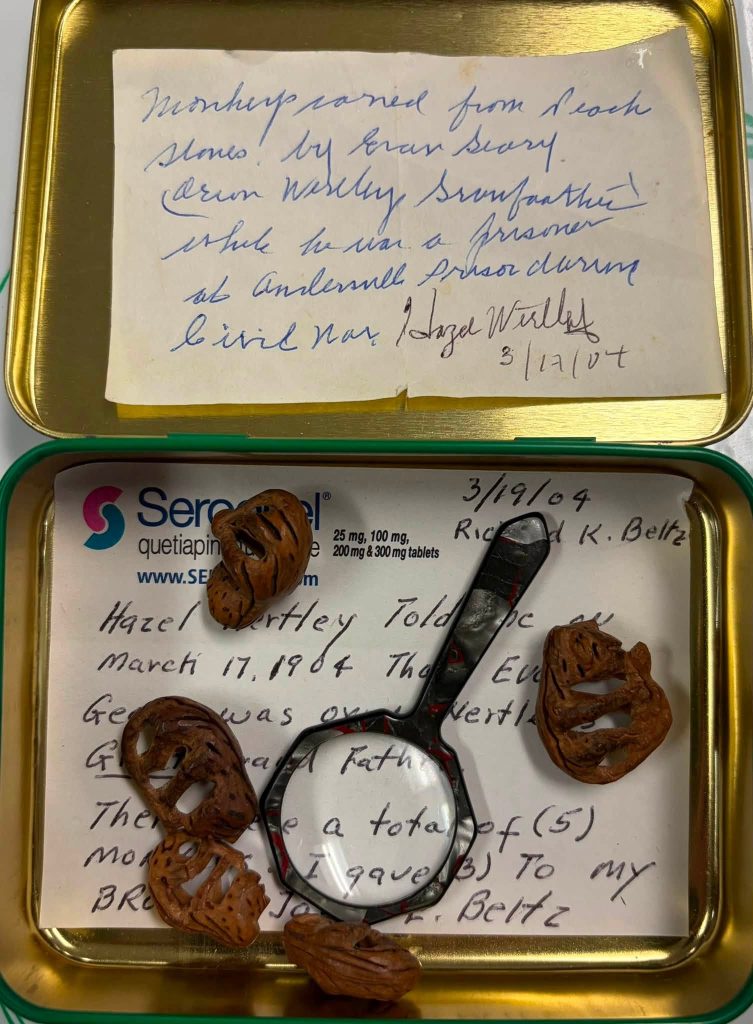 Monkeys carved from Peach
stones. by Evan Geary
(Orion Wertley Granfaather)
while he was a prisoner
at Andersvill Prison during
Civil War. Hazel Wertley
3/17/04
3/19/04
Richard K. Beltz
Sero el®
quetiapin e
25 mg, 100 mg,
200 mg & 300 mg tablets
www.SE m
Hazel Wertley Told me on
March 17, 1904 Tha Eva
Ge was o Wertle s
G and Fath
The e a total of (5)
Mon I gave (3) To my
BRO Ja E. Beltz